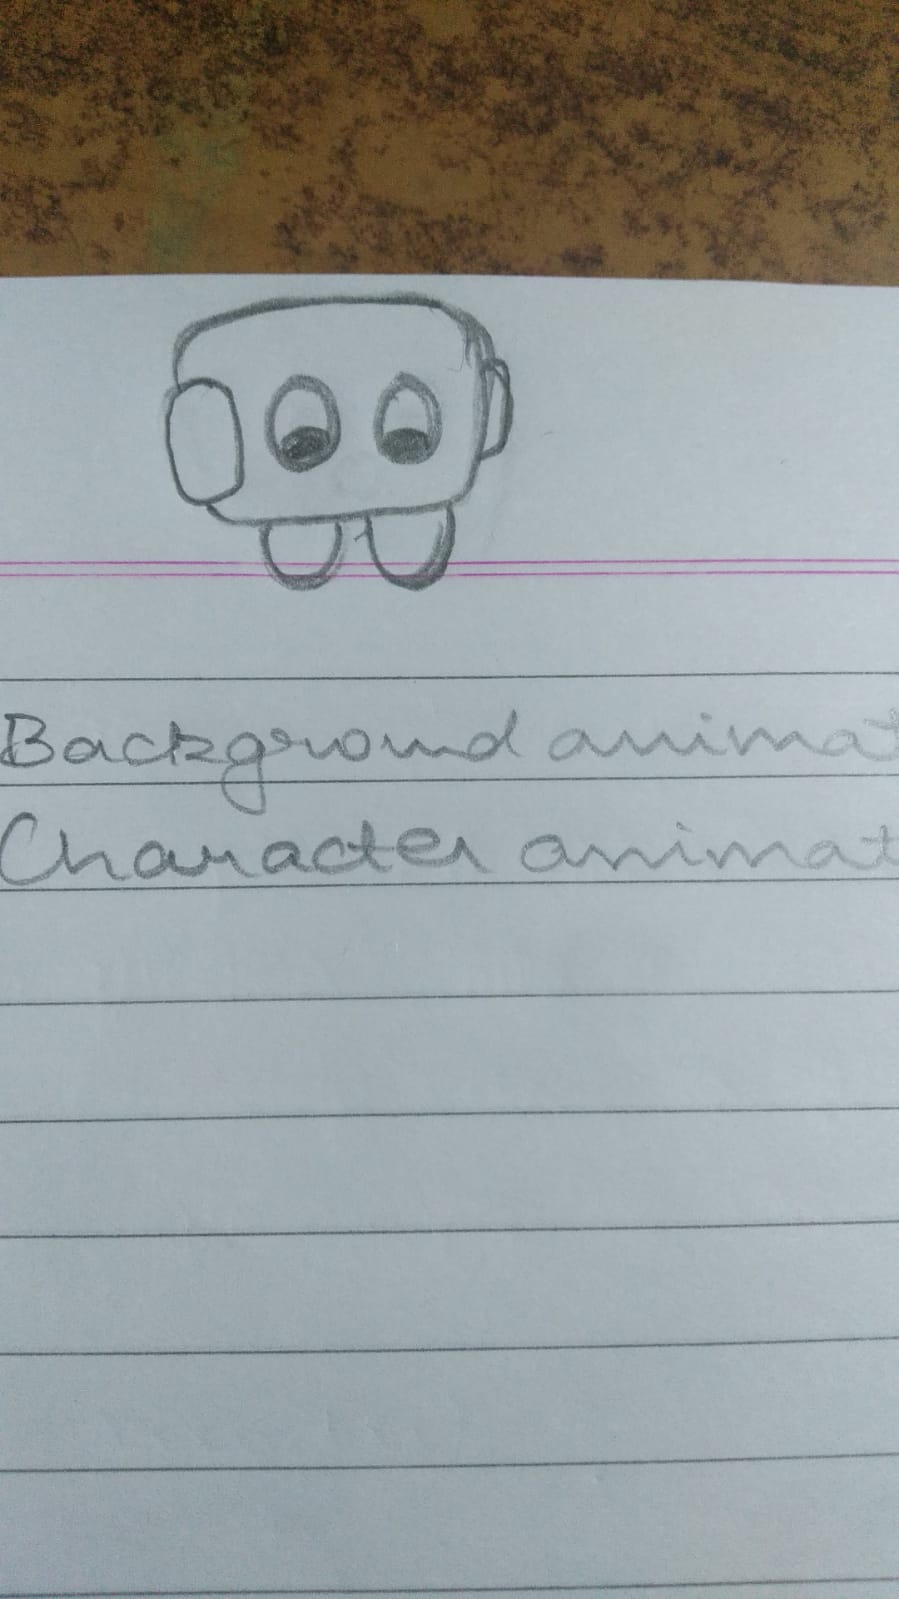 Background animat
Character animat